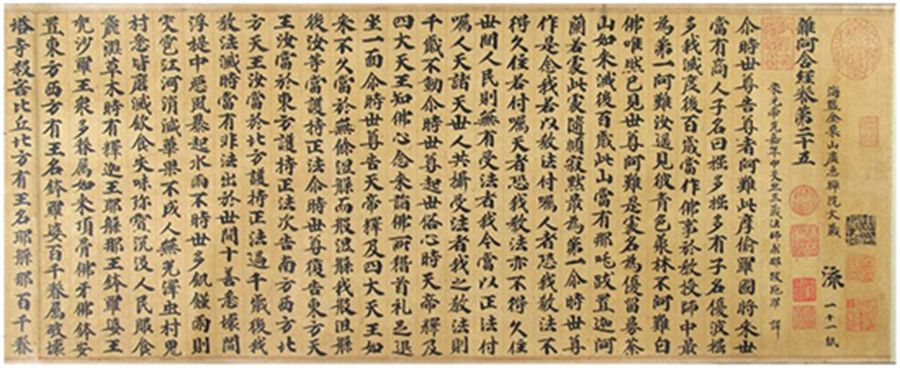 海鹽金粟山廣惠禪院大藏 流 一十一紙
雜阿含經卷第二十五
宋元帝元嘉年中天竺三藏法師求那跋陀羅 譯
尒時世尊告尊者阿難此摩偷羅國將來世
當有商人子名曰掘多掘多有子名優波掘
多我滅度後百歲當作佛事於教授師中最
為第一阿難汝遥見彼青色叢林不阿難白
佛唯然已見世尊阿難是處名為優留曼茶
山如來滅後百歲此山當有那吒跋置迦阿
蘭若處此處隨順寂默最為第一尒時世尊
作是念我若以教法付囑人者恐我教法不
得久住若付囑天者恐我教法亦不得久住
世間人民則無有受法者我今當以正法付
囑人天諸天世人共攝受法者我之教法則
千歲不動尒時世尊起世俗心時天帝釋及
四大天王知佛心念來詣佛所稽首礼足退
坐一面尒時世尊告天帝釋及四大天王如
來不久當於無餘涅槃而般涅槃我般涅槃
後汝等當護持正法尒時世尊復告東方天
王汝當於東方護持正法次告南方西方北
方天王汝當於北方護持正法過千歲後我
教法滅時當有非法出於世間十善悉壞閻
浮提中惡風暴起水雨不時世多飢饉雨則
灾雹江河消滅華果不成人無光澤虫村鬼
村悉皆磨滅飲食失味珍寶沉没人民服食
麁澁草木時有釋迦王耶槃那王鉢羅婆王
兜沙羅王衆多眷属如來頂骨佛牙佛鉢安
置東方西方有王名鉢羅婆百千眷属破壞
塔寺殺害比丘北方有王名耶槃那百千眷